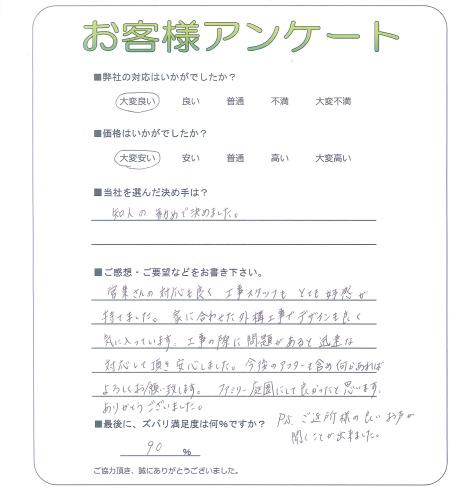 お客様アンケート
■弊社の対応はいかがでしたか？
大変良い 良い 普通 不満 大変不満
■価格はいかがでしたか？
大変安い 安い 普通 高い 大変高い
■当社を選んだ決め手は？
知人の勧めで決めました。
■ご感想・ご要望などをお書き下さい。
営業さんの対応も良く 工事スタッフも とても好感が
持てました。 家に合わせた外構工事でデザインも良く
気に入っています。工事の際に問題があると迅速な
対応して頂き安心しました。今後のアフターも含め何かあれば
よろしくお願い致します。 ファミリー庭園にして良かったと思います。
ありがとうございました。
■最後に、ズバリ満足度は何%ですか？
90 %
P.S. ご近所様の良いお声が
聞くことが出来ました。
ご協力頂き、誠にありがとうございました。